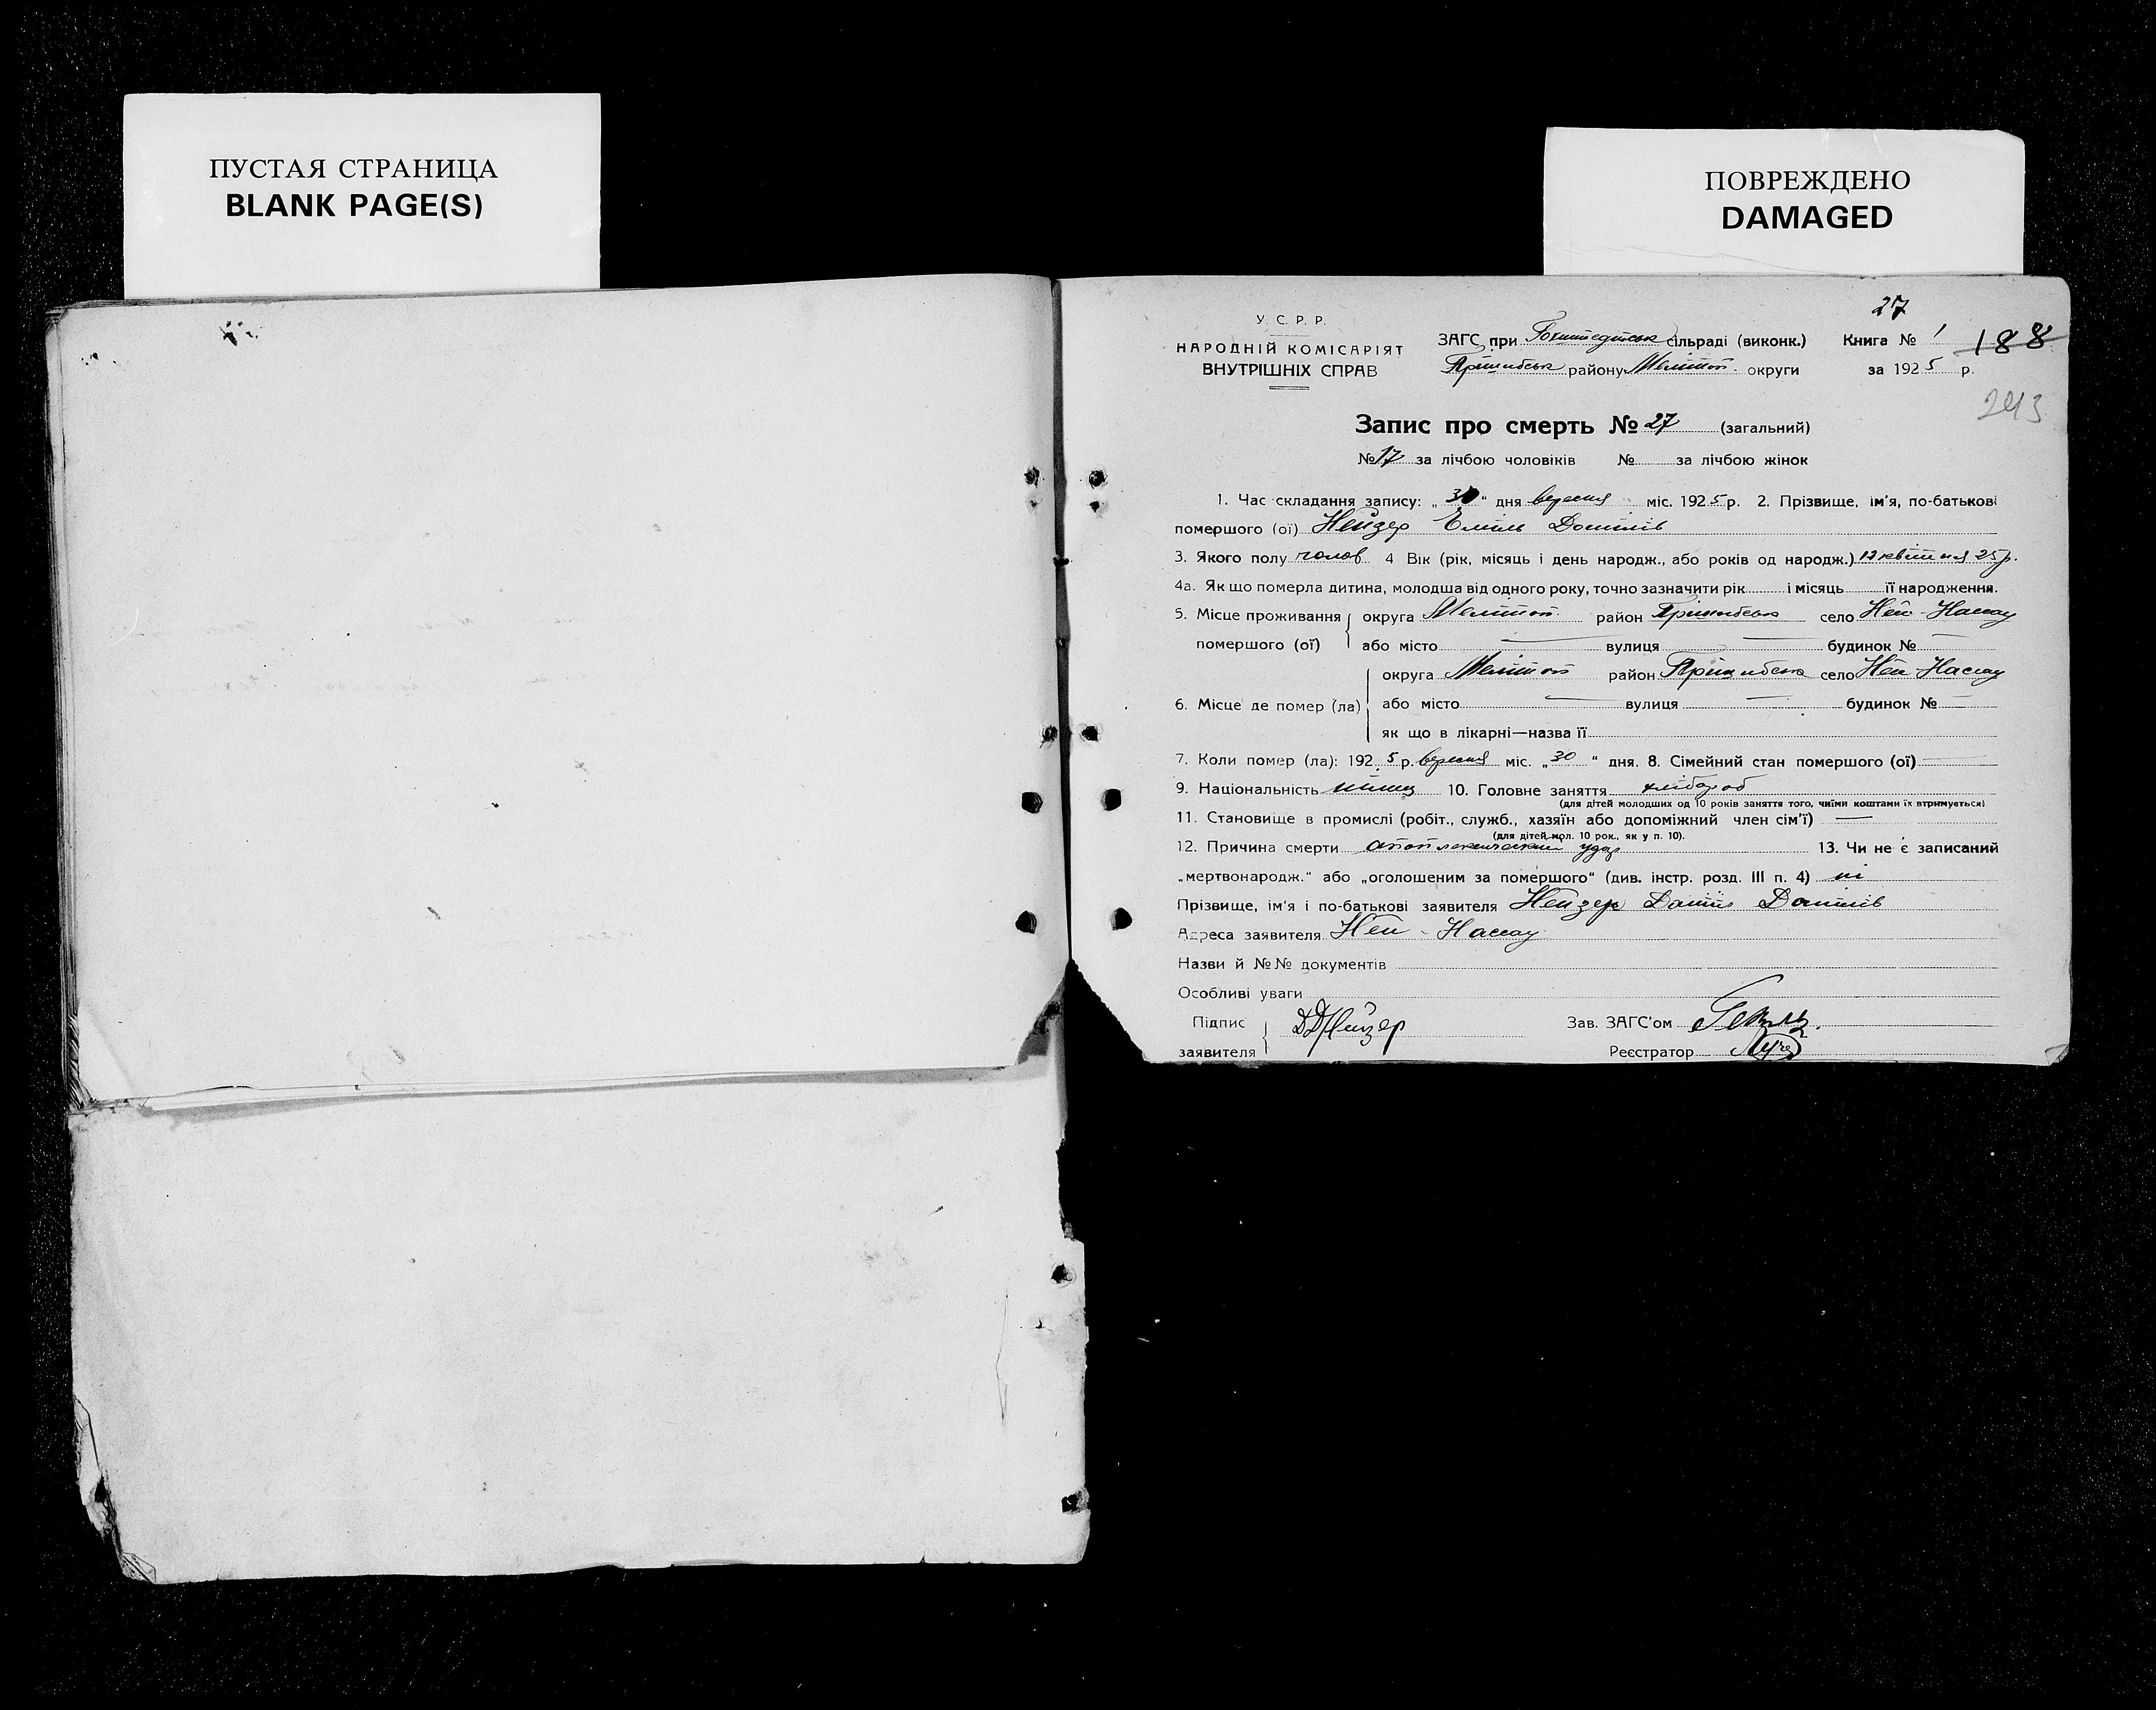 ПУСТАЯ СТРАНИЦА
BLANK PAGE(S)
ПОВРЕЖДЕНО
DAMAGED
27
У. С. Р. Р.
НАРОДНІЙ КОМІСАРІЯТ
ВНУТРІШНІХ СПРАВ
ЗАГС при Гохштедтськ сільраді (виконк.) Книга № 1 188
Пришибськ району Меліт. округи за 1925 р.
243
Запис про смерть № 27 (загальний)
№ 17 за лічбою чоловіків № за лічбою жінок
1. Час складання запису: „30“ дня вересня міс. 1925 р. 2. Прізвище, ім'я, по-батькові
помершого (ої) Нейзер Еміль Данилів
3. Якого полу чолов 4 Вік (рік, місяць і день народж., або років од народж.) 12 квітня 25 р.
4а. Як що померла дитина, молодша від одного року, точно зазначити рік і місяць її народження.
5. Місце проживання округа Меліт. район Пришибськ село Ней-Нассау
помершого (ої) або місто — вулиця — будинок № —
округа Меліт район Пришибськ село Ней-Нассау
6. Місце де помер (ла) або місто — вулиця — будинок № —
як що в лікарні—назва її
7. Коли помер (ла): 1925 р. вересня міс. „30“ дня. 8. Сімейний стан помершого (ої) —
9. Національність німец 10. Головне заняття хлібороб
(для дітей молодших од 10 років заняття того, чиїми коштами їх втримується)
11. Становище в промислі (робіт., служб., хазяїн або допоміжний член сім'ї) —
(для дітей мол. 10 рок., як у п. 10).
12. Причина смерти апоплексический удар 13. Чи не є записаний
„мертвонародж.“ або „оголошеним за помершого“ (див. інстр. розд. III п. 4) ні
Прізвище, ім'я і по-батькові заявителя Нейзер Даниїл Данилів
Адреса заявителя Ней-Нассау
Назви й №№ документів
Особливі уваги
Підпис ДДНейзер Зав. ЗАГС'ом
заявителя Реєстратор